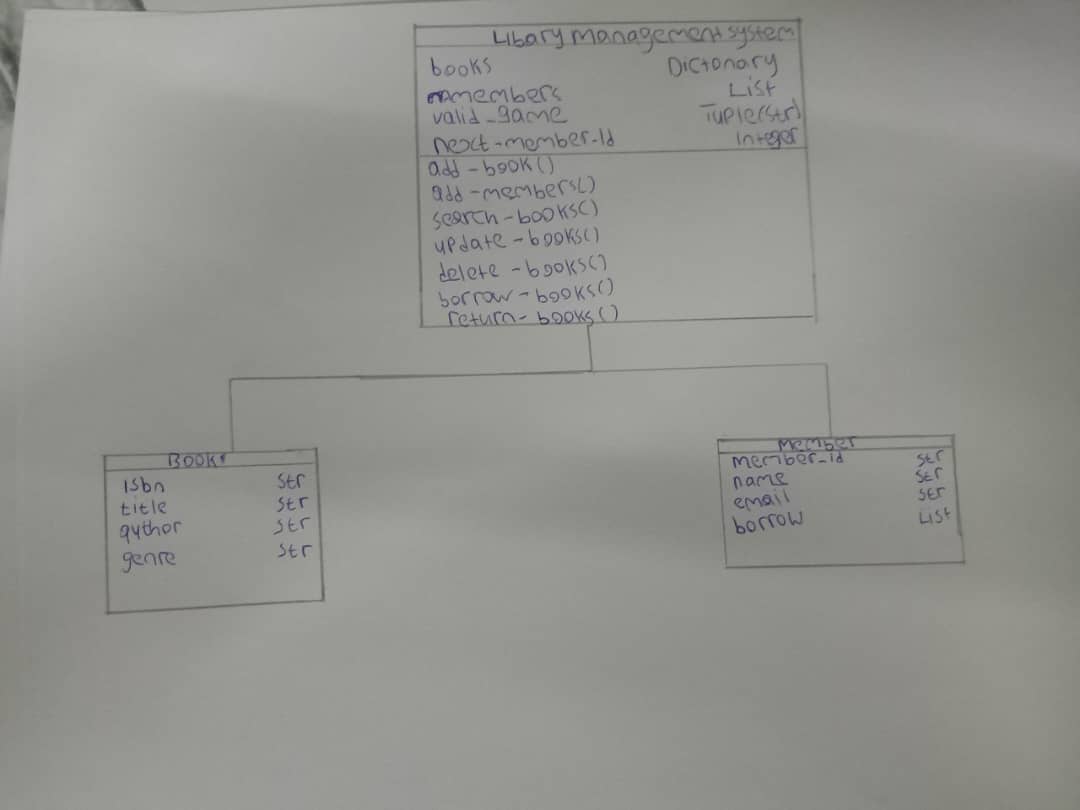 Libary management system
books Dictonary
members List
valid_game Tuple(str)
next-member-Id Integer
add-book()
add-members()
search-books()
update-books()
delete-books()
borrow-books()
return-books()
Books
isbn Str
title Str
author Str
genre Str
Member
member_id Str
name Str
email Str
borrow List